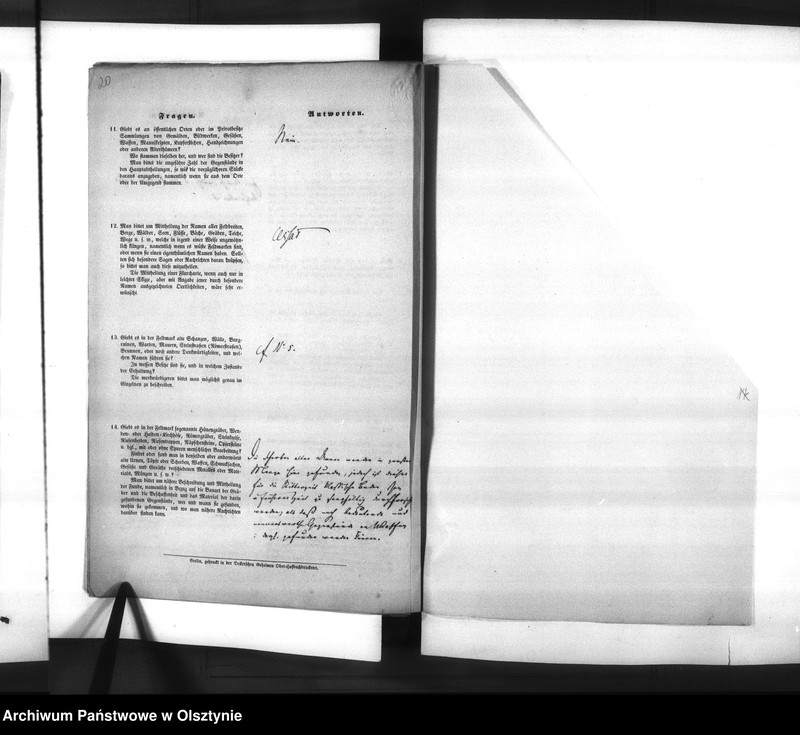 20
Fragen.
Antworten.
11. Giebt es an öffentlichen Orten oder im Privatbesitz
Sammlungen von Gemälden, Bildwerken, Gefäßen,
Waffen, Manuskripten, Kupferstichen, Handzeichnungen
oder anderen Alterthümern?
Wo stammen dieselben her, und wer sind die Besitzer?
Man bittet die ungefähre Zahl der Gegenstände in
den Hauptabtheilungen, so wie die vorzüglicheren Stücke
daraus anzugeben, namentlich wenn sie aus dem Orte
oder der Umgegend stammen.
Nein.
12. Man bittet um Mittheilung der Namen aller Feldbreiten,
Berge, Wälder, Seen, Flüsse, Bäche, Gräben, Teiche,
Wege u. s. w., welche in irgend einer Weise ungewöhn-
lich klingen, namentlich wenn es wüste Feldmarken sind,
oder wenn sie einen eigenthümlichen Namen haben. Soll-
ten sich besondere Sagen oder Nachrichten daran knüpfen,
so bittet man auch diese mitzutheilen.
Die Mittheilung einer Flurcharte, wenn auch nur in
leichter Skizze, aber mit Angabe jener durch besondere
Namen ausgezeichneten Oertlichkeiten, wäre sehr er-
wünscht.
13. Giebt es in der Feldmark alte Schanzen, Wälle, Burg-
ruinen, Warten, Mauern, Steinstraßen (Römerstraßen),
Brunnen, oder noch andere Denkwürdigkeiten, und wel-
chen Namen führen sie?
In wessen Besitz sind sie, und in welchem Zustande
der Erhaltung?
Die merkwürdigeren bittet man möglichst genau im
Einzelnen zu beschreiben.
cf. No 5.
14. Giebt es in der Feldmark sogenannte Hünengräber, Wen-
den- oder Heiden-Kirchhöfe, Römergräber, Steinkreise,
Riesenbetten, Riesentreppen, Näpfchensteine, Opfersteine
u. dgl., mit oder ohne Spuren menschlicher Bearbeitung?
Findet oder fand man in denselben oder anderwärts
alte Urnen, Töpfe oder Scherben, Waffen, Schmucksachen,
Gefäße und Geräthe verschiedenen Metalles oder Mate-
rials, Münzen u. s. w.?
Man bittet um nähere Beschreibung und Mittheilung
der Funde, namentlich in Bezug auf die Bauart der Grä-
ber und die Beschaffenheit und das Material der darin
gefundenen Gegenstände, wer und wann sie gefunden,
wohin sie gekommen, und wo man nähere Nachrichten
darüber finden kann.
Berlin, gedruckt in der Deckerschen Geheimen Ober-Hofbuchdruckerei.
Archiwum Państwowe w Olsztynie